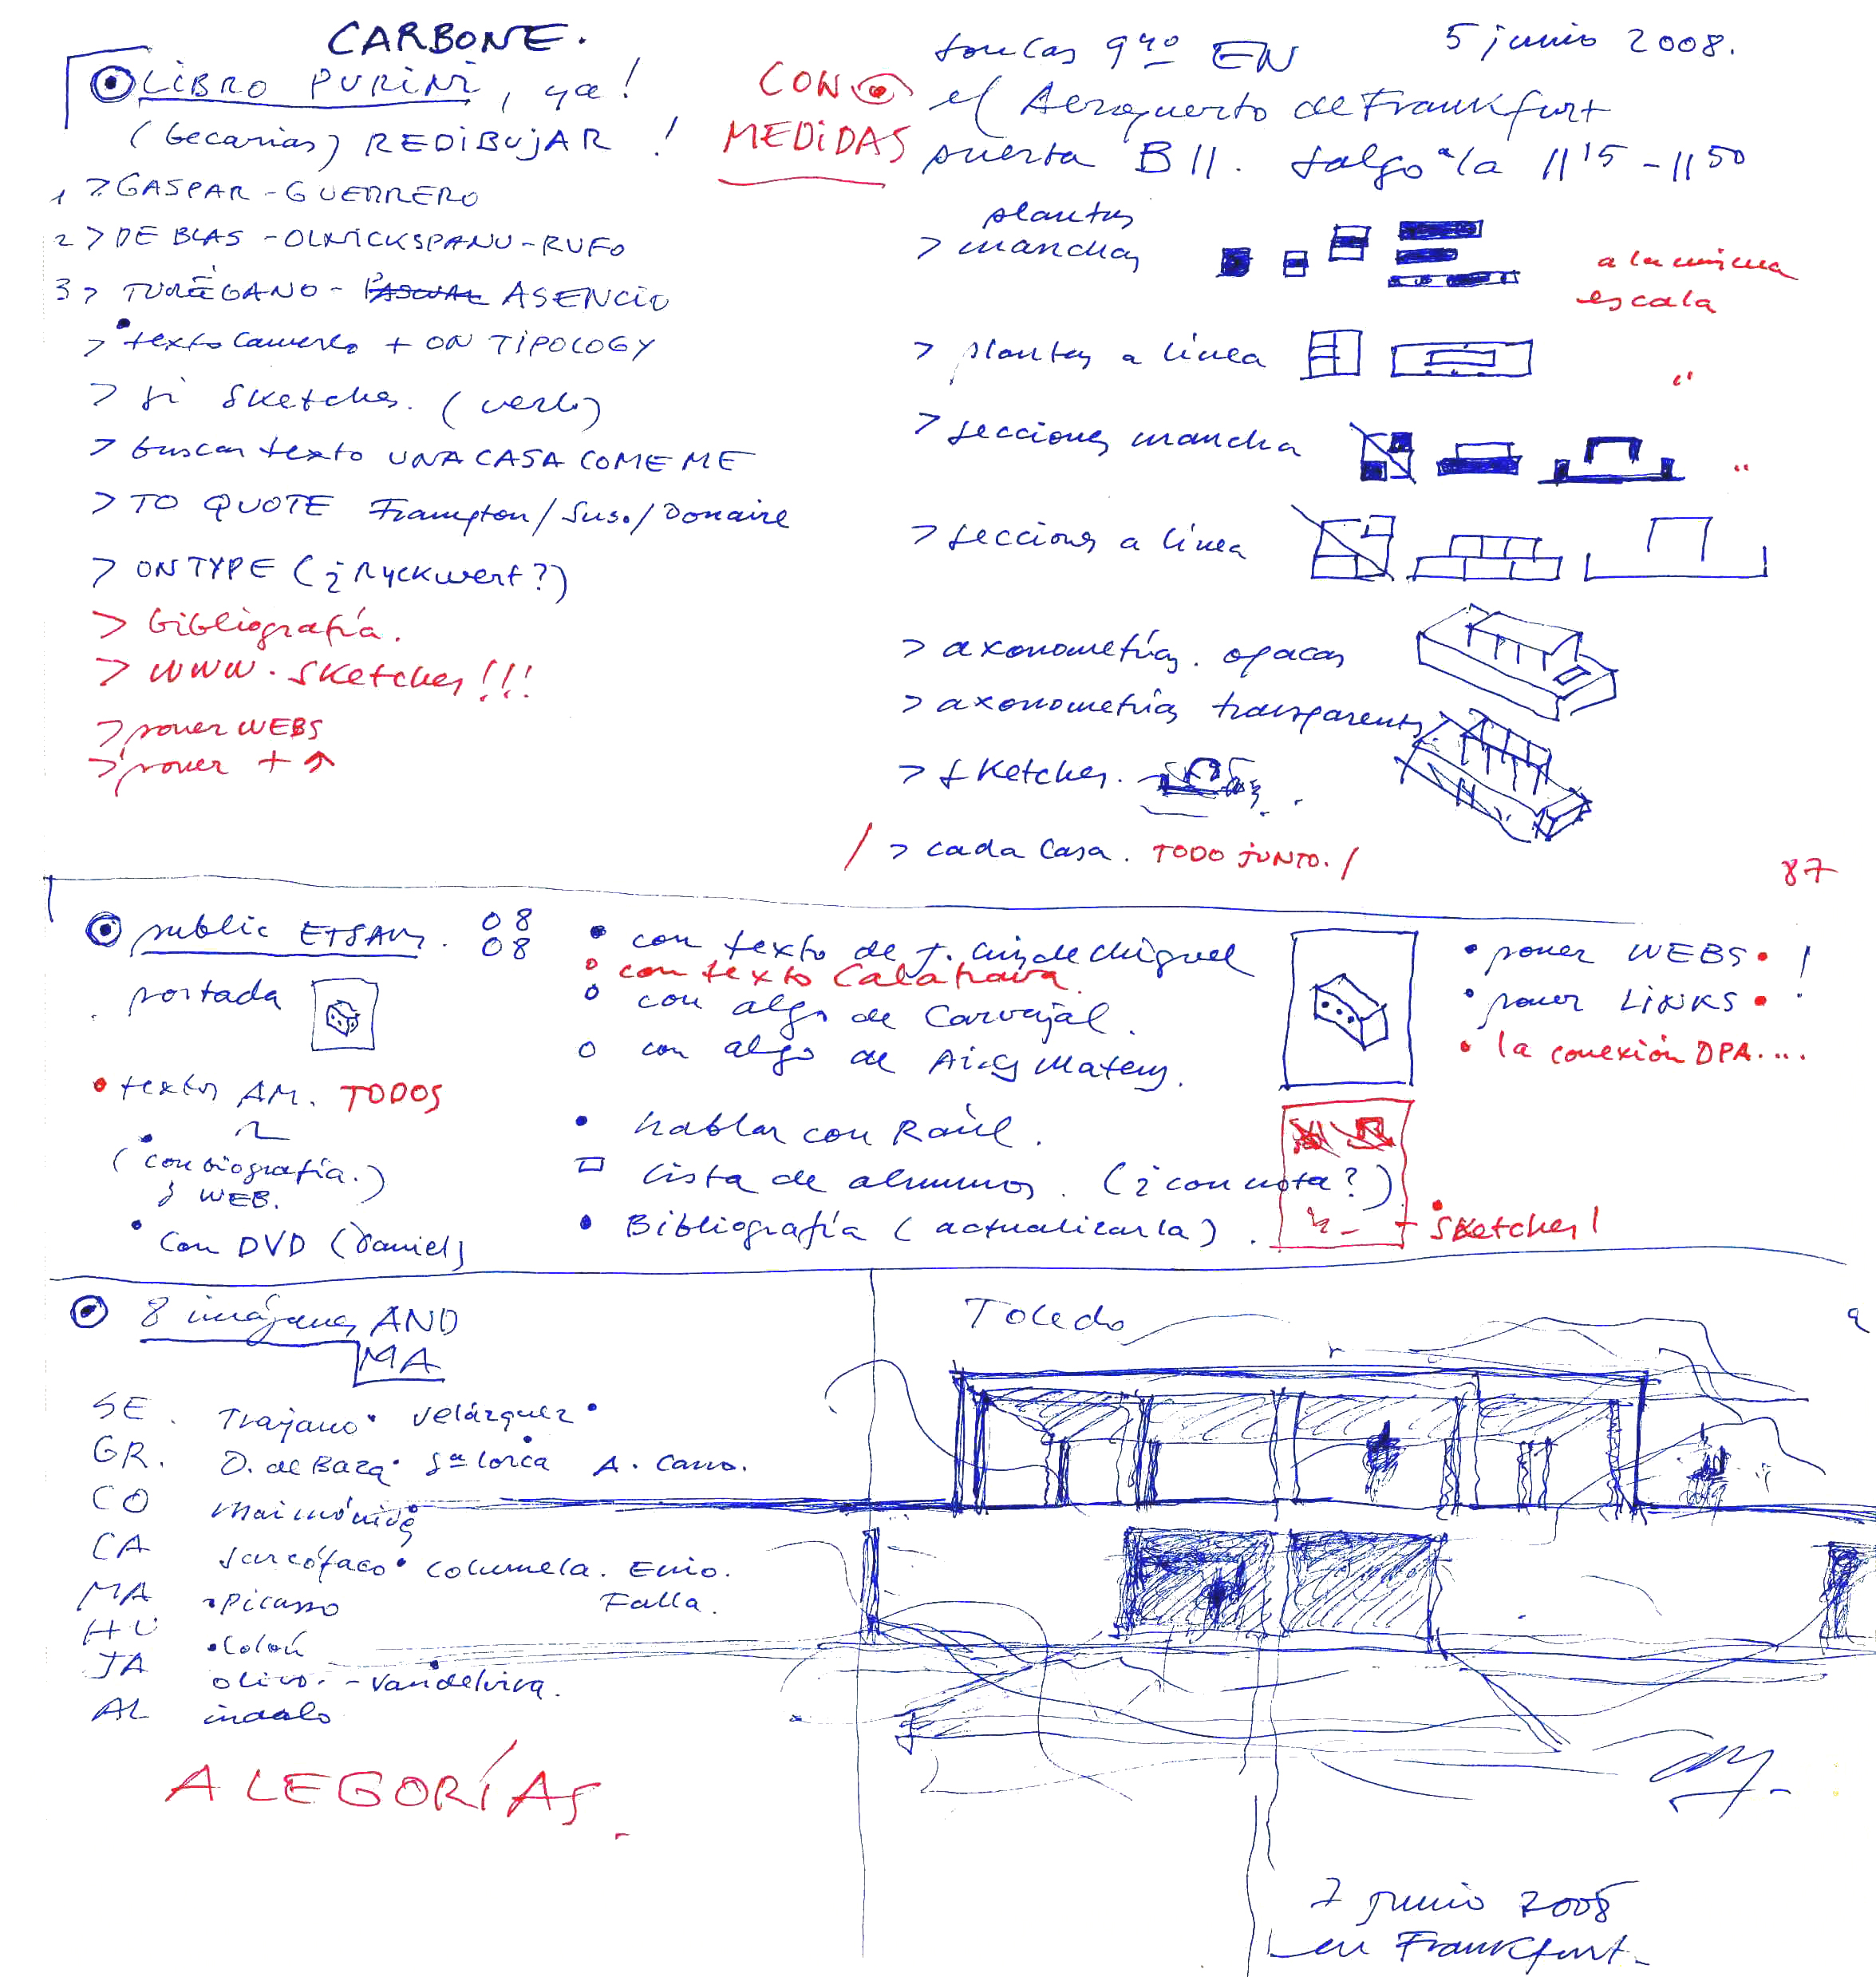 CARBONE.
LIBRO PURINI, ya!
(becarias) REDIBUJAR!
CON
MEDIDAS
1 > GASPAR - GUERRERO
2 > DE BLAS - OLNICKSPANU - RUFO
3 > TURÉGANO - PASCUAL ASENCIO
> texto Camerlo + ON TIPOLOGY
> si Sketches. (verlo)
> buscar texto UNA CASA COME ME
> TO QUOTE Frampton/Sus./Donaire
> ON TYPE (¿Ryckwert?)
> bibliografía.
> WWW. Sketches!!!
> poner WEBS
> poner +
5 junio 2008.
son las 9 40 EN
el Aeropuerto de Frankfurt
puerta B11. salgo a la 11 15 - 11 50
plantas
> manchas
a la misma
escala
> plantas a línea
"
> secciones mancha
"
> secciones a línea
> axonometrías. opacas
> axonometrías transparentes
> sketches.
/ > cada casa. TODO JUNTO. /
87
public ETSAM. 08
08
portada
• textos AM. TODOS
(con biografía.)
y WEB.
• con DVD (Daniel)
• con texto de J. Luis de Miguel
° con texto Calatrava.
o con algo de Carvajal.
o con algo de Aires Mateus.
• hablar con Raúl.
lista de alumnos. (¿con nota?)
• Bibliografía (actualizarla).
• poner WEBS • !
• poner LINKS •
• la conexión DPA....
+ Sketches!
8 imágenes AND
MA
SE. Trajano • Velázquez •
GR. D. de Baza • Gª Lorca A. Cano.
CO Maimónides
CA Sarcófago • Columela. Emio.
Falla.
MA • Picasso
HU • Colón
JA olivo. - Vandelvira.
AL indalo
ALEGORÍAS.
Toledo
7 junio 2008
en Frankfurt.